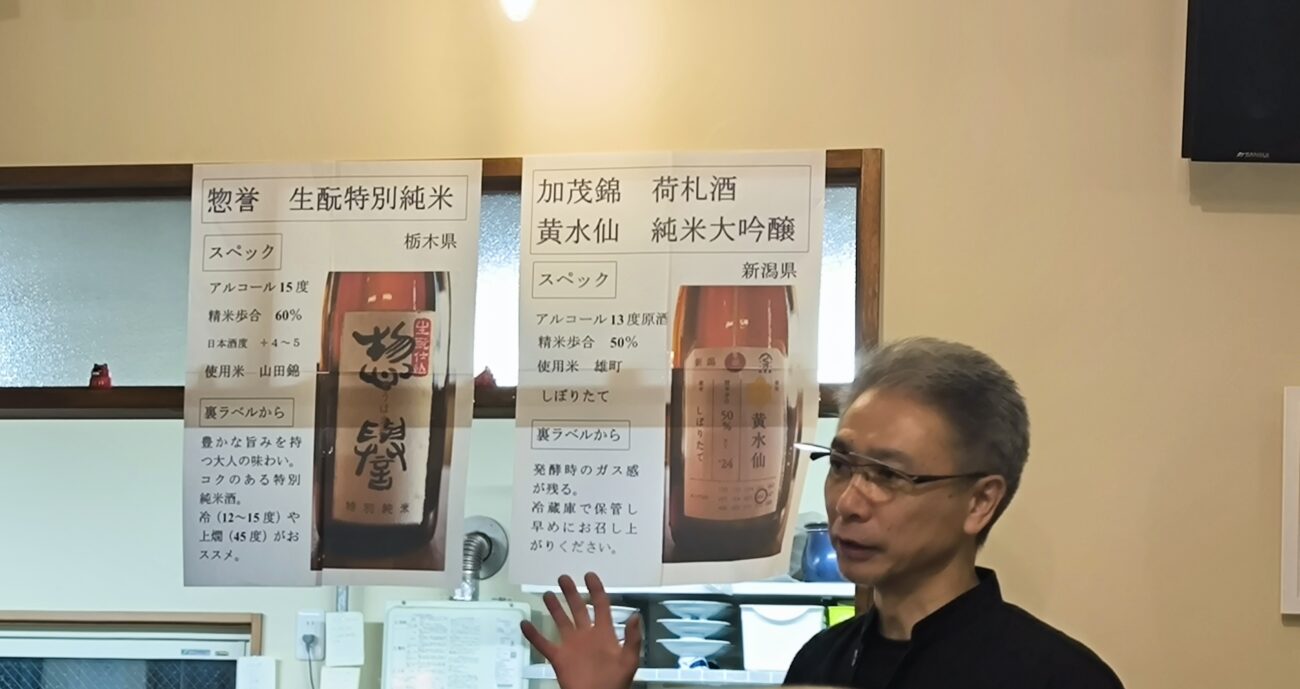 惣誉 生酛特別純米
栃木県
スペック
アルコール15度
精米歩合 60%
日本酒度 +4～5
使用米 山田錦
裏ラベルから
豊かな旨みを持
つ大人の味わい。
コクのある特別
純米酒。
冷（12～15度）や
上燗（45度）がお
ススメ。
生酛仕込
惣誉
特別純米
加茂錦 荷札酒
黄水仙 純米大吟醸
新潟県
スペック
アルコール13度原酒
精米歩合 50%
使用米 雄町
しぼりたて
裏ラベルから
発酵時のガス感
が残る。
冷蔵庫で保管し
早めにお召し上
がりください。
新潟
黄水仙
50%
'24
しぼりたて
SANSUI